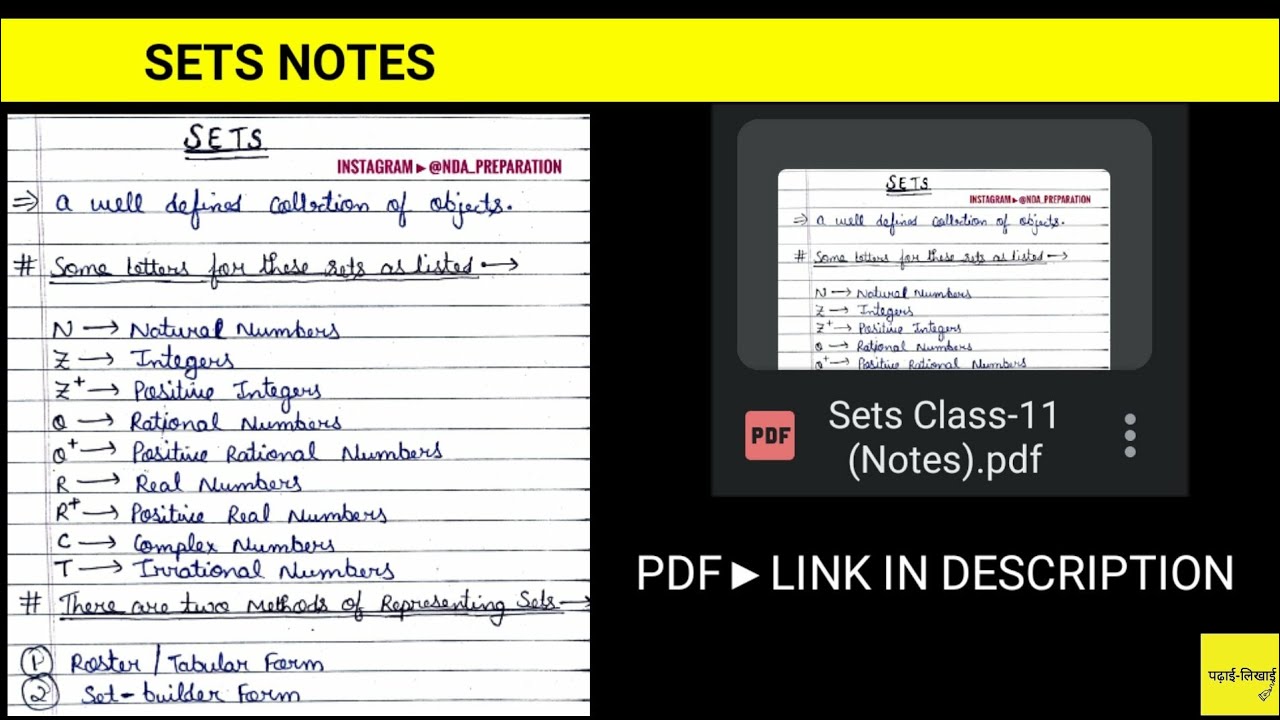 SETS NOTES
SETS
INSTAGRAM►@NDA_PREPARATION
⇒ a well defined collection of objects.
# Some letters for these sets as listed →
N → Natural Numbers
Z → Integers
Z⁺ → Positive Integers
Q → Rational Numbers
Q⁺ → Positive Rational Numbers
R → Real Numbers
R⁺ → Positive Real Numbers
C → Complex Numbers
T → Irrational Numbers
# There are two Methods of Representing Sets →
① Roster / Tabular Form
② Set-builder Form
SETS
INSTAGRAM►@NDA_PREPARATION
⇒ a well defined collection of objects.
# Some letters for these sets as listed →
N → Natural Numbers
Z → Integers
Z⁺ → Positive Integers
Q → Rational Numbers
Q⁺ → Positive Rational Numbers
PDF
Sets Class-11
(Notes).pdf
PDF►LINK IN DESCRIPTION
पढ़ाई-लिखाई